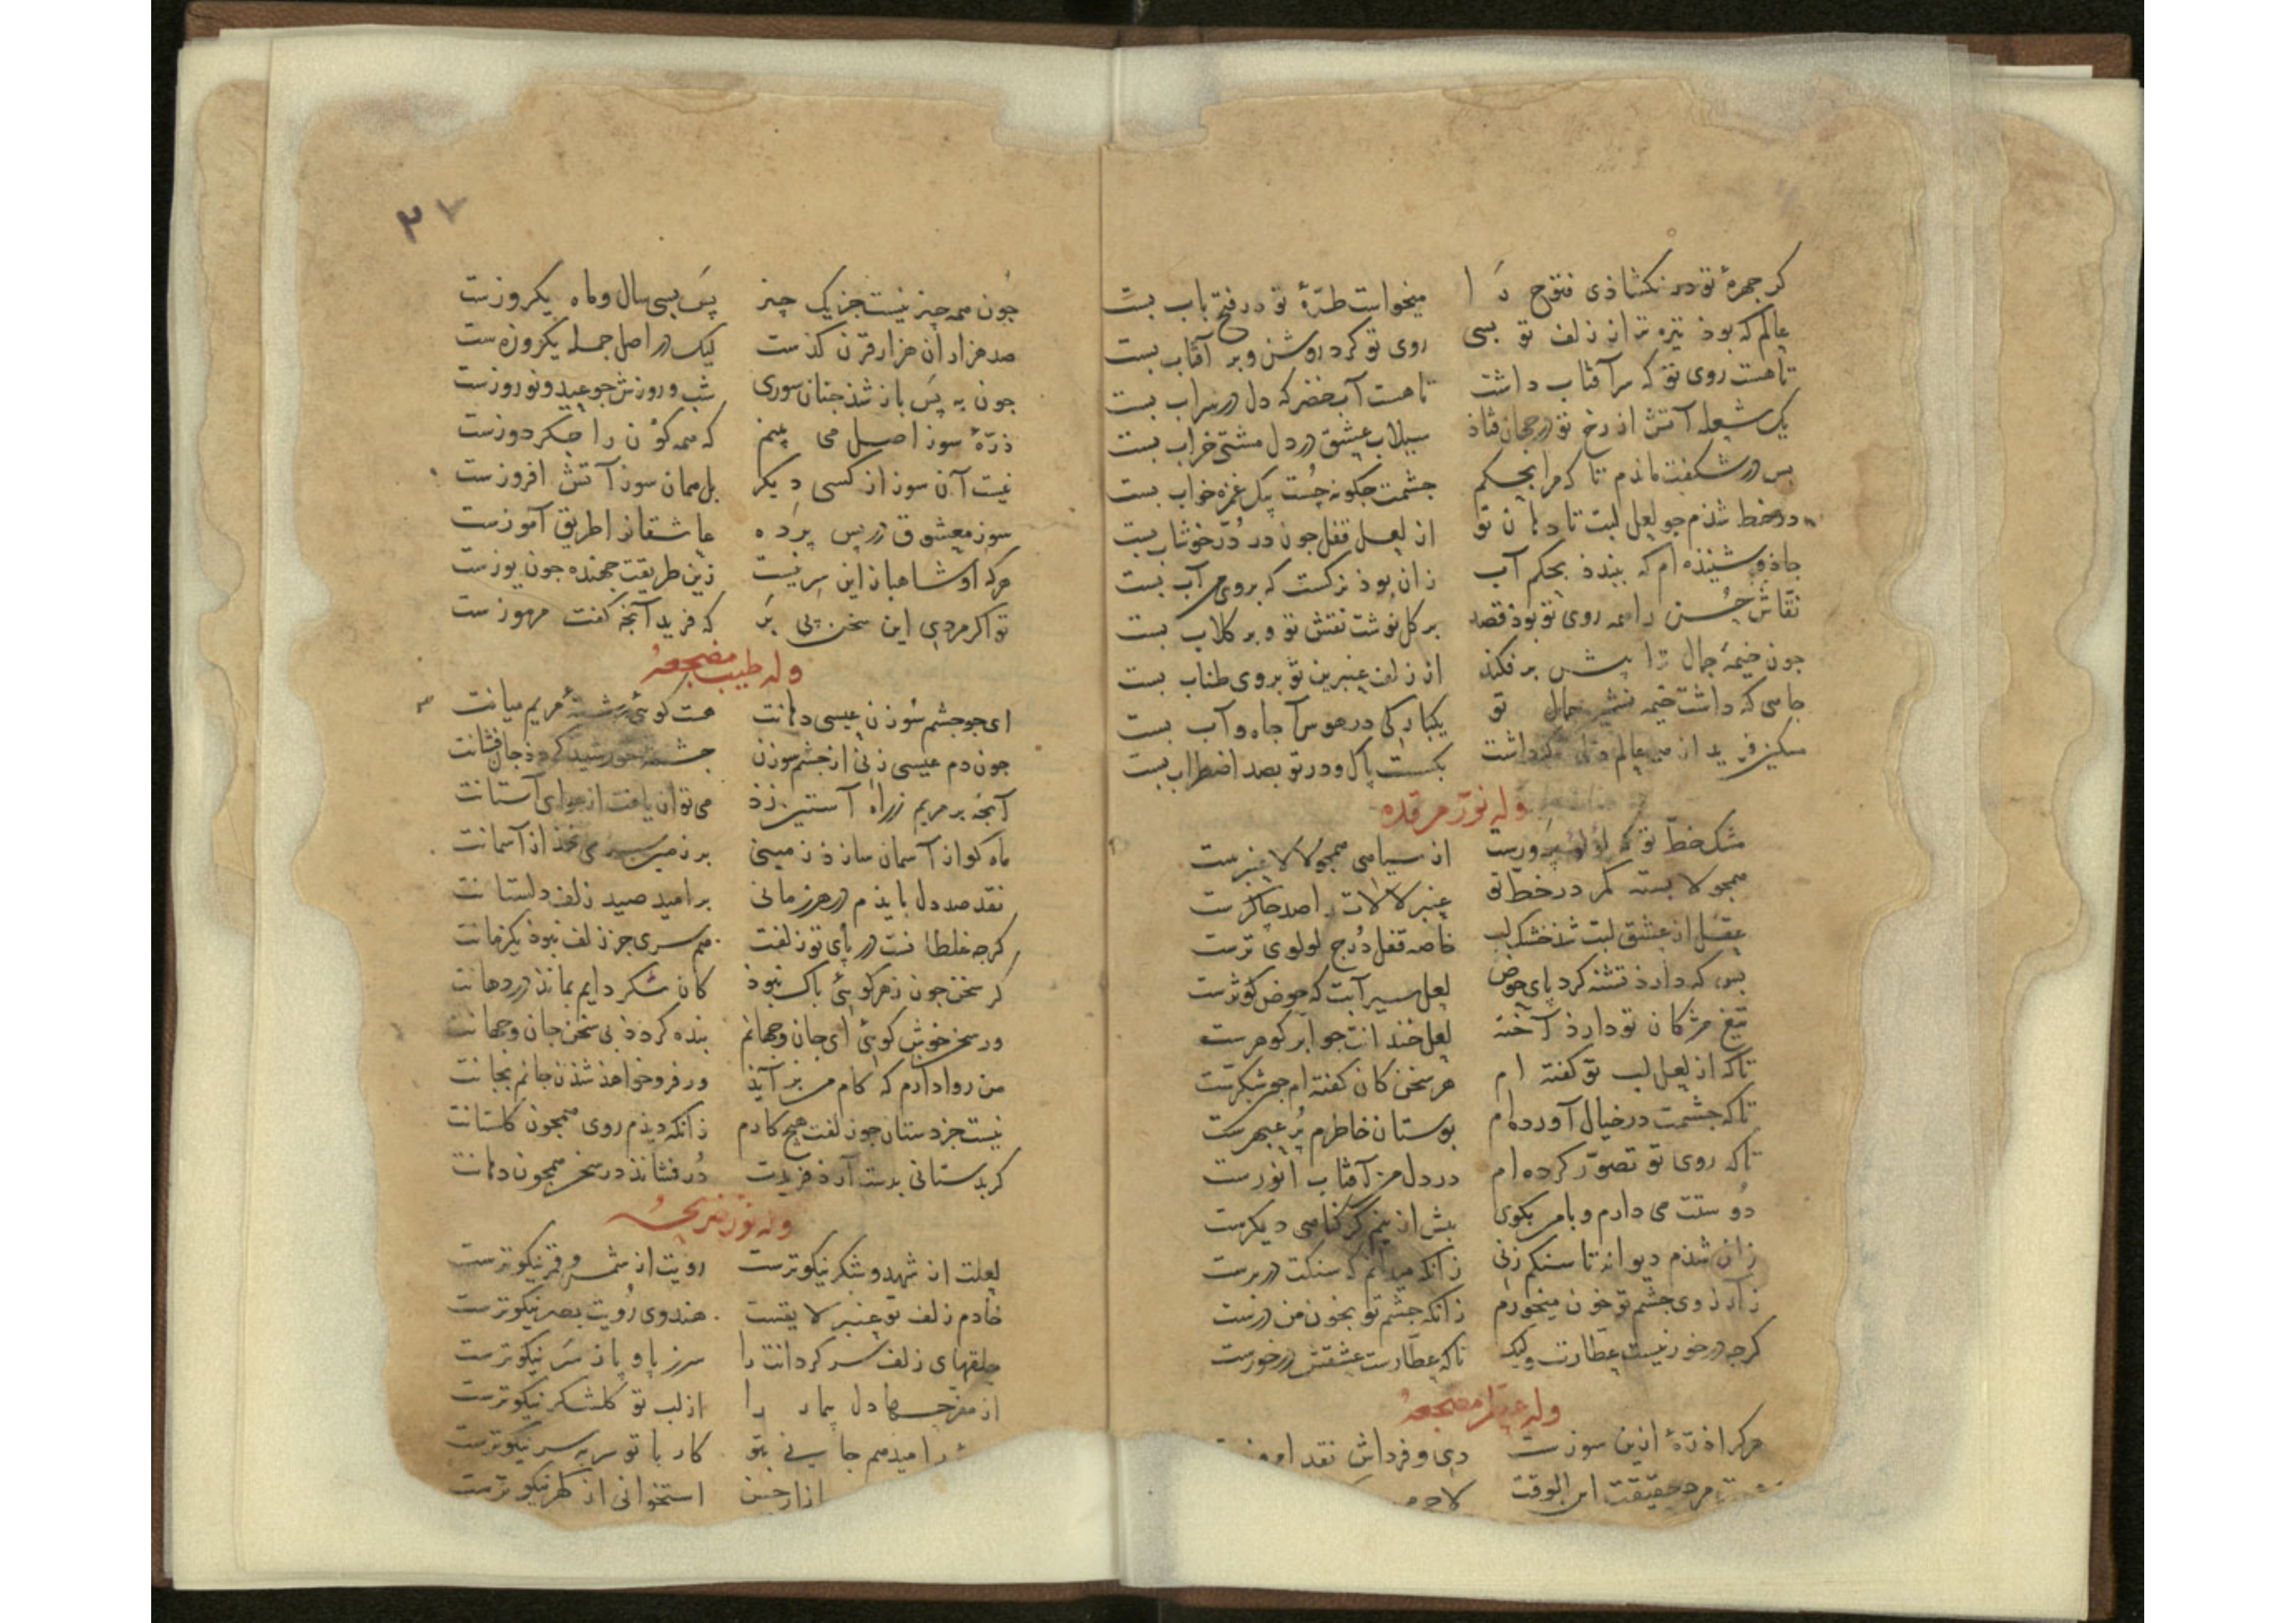 کر جهرهٔ تو در نکشاذی فتوح را میخواست طرّهٔ تو در فتح باب بست
عالم که بوذ تیره تر از زلف تو بسی روی تو کرد روشن و بر آفتاب بست
تا هست روی تو که سر آفتاب داشت تا هست آب خضر که دل در سراب بست
یک شعله آتش از رخ تو در جهان فتاذ سیلاب عشق در دل مشتی خراب بست
بس در شکفت ماندم تا که مرا بحکم جشمت جکونه جست بیک غمزه خواب بست
در خط شذم جو لعل لبت تا دهان تو از لعل قفل جون در درّ خوشاب بست
جاذو شنیذه ام که ببندذ بحکم آب زان بوذ نرکست که بروی من آب بست
نقاش حسن را همه روی تو بوذ قصد بر کل نوشت نقش تو و بر کلاب بست
جون خیمهٔ جمال ترا پیش برفکند از زلف عنبرین تو بر وی طناب بست
جامی که داشت خیمه نشین جمال تو یکبارکی در هوس جاه و آب بست
مسکین فرید از همه عالم دلی که داشت بکسست پاک و در تو بصد اضطراب بست
وله نوّر مرقده
مشک خطّ تو که لؤلؤ پرورست از سیاهی همجو لالا عنبرست
همجو لا بسته کمر در خطّ تو عنبر لالات را صد جاکرست
عقل از عشق لبت شذ خشک لب خاصه قفل دُرج لولوی ترست
بس که دارذ تشنه کرد پای حوض لعل سیرآبت که حوض کوثرست
تیغ مژکان تو دارذ آخته لعل خندانت جو ابر کوهرست
تا که از لعل لب تو کفته ام هر سخن کان کفته ام جون شکرست
تا که جشمت در خیال آورده ام بوستان خاطرم پُر عبهرست
تا که روی تو تصوّر کرده ام در دل من آفتاب انورست
دوستت می دارم و با من بکوی بیش ازینم کر کناهی دیکرست
زان شذم دیوانه تا سنکم زنی زانکه میدانم که سنکت در برست
زارزوی جشم تو خون میخورم زانکه جشم تو بخون من درست
کرجه در خور نیست عطّارت ولیک تا که عطارست عشقش در خورست
وله عطر مضجعهُ
هرکرا ذرّهٔ ازین سوزست دی و فرداش نقد امروزست
مرد حقیقت ابن الوقت
۳۷
جون همه جیز نیست جز یک جیز پَس بسی سال و ماه یکروزست
صد هزاران هزار قرن کذشت لیک در اصل جمله یکروزه ست
جون به پَس باز شذ جنان سوری شب و روزش جو عید و نوروزست
ذرّهٔ سوز اصل می بینم که همه کوْن را جکردوزست
نیست آن سوز از کسی دیکر بل همان سوز آتش افروزست
سوز معشوق در پس پرَده عاشقانرا طریق آموزست
هرکه او شاهباز این سِر نیست زین طریقت جهنده جون یوزست
تو اکر مردی این سخن پی بَر که فرید آنجه کفت مرموزست
وله طیب مضجعهُ
ای جو جشم سُوزن عیسی دهانت هست کوئی رشتهٔ مریم میانت
جون دم عیسی زنی از جشم سوزن جشمهٔ خورشید کردذ جان فشانت
آنجه بر مریم ز راه آستین زذ می توان یافت از هوای آستانت
ماه کو از آسمان سازذ زمینی بر زمین سر می نهذ از آسمانت
نقد صد دل بایذم در هر زمانی بر امید صید زلف دلستانت
کرجه غلطانست در پای تو زلفت هم سری جز زلف نبوذ یکزمانت
کر سخن جون زهر کوئی باک نبوذ کان شکر دایم بماند در دهانت
ور سخن خوش کوئی ای جان و جهانم بنده کردذ بی سخن جان و جهانت
من روا دارم که کام من برآیذ ور فرو خواهذ شذن جانم بجانت
نیست جز دستان جون زلفت هیج کارم زانکه دیذم روی همجون کلستانت
کر بدستانی بدست آرذ فریدت دُر فشانذ در سخن همجون دهانت
وله نوّر ضریحهُ
لعلت از شهد و شکر نیکوترست رویت از شمس و قمر نیکوترست
خادم زلف تو عنبر لایقست هندوی رُویت بصر نیکوترست
حلقهای زلف سرکردانت را سر ز پا و پا ز سَر نیکوترست
از مفرّحها دل بیمار را از لب تو کلشکر نیکوترست
را میدهم جانی بتو کار با تو سر به سر نیکوترست
استخوانی از کهر نیکوترست